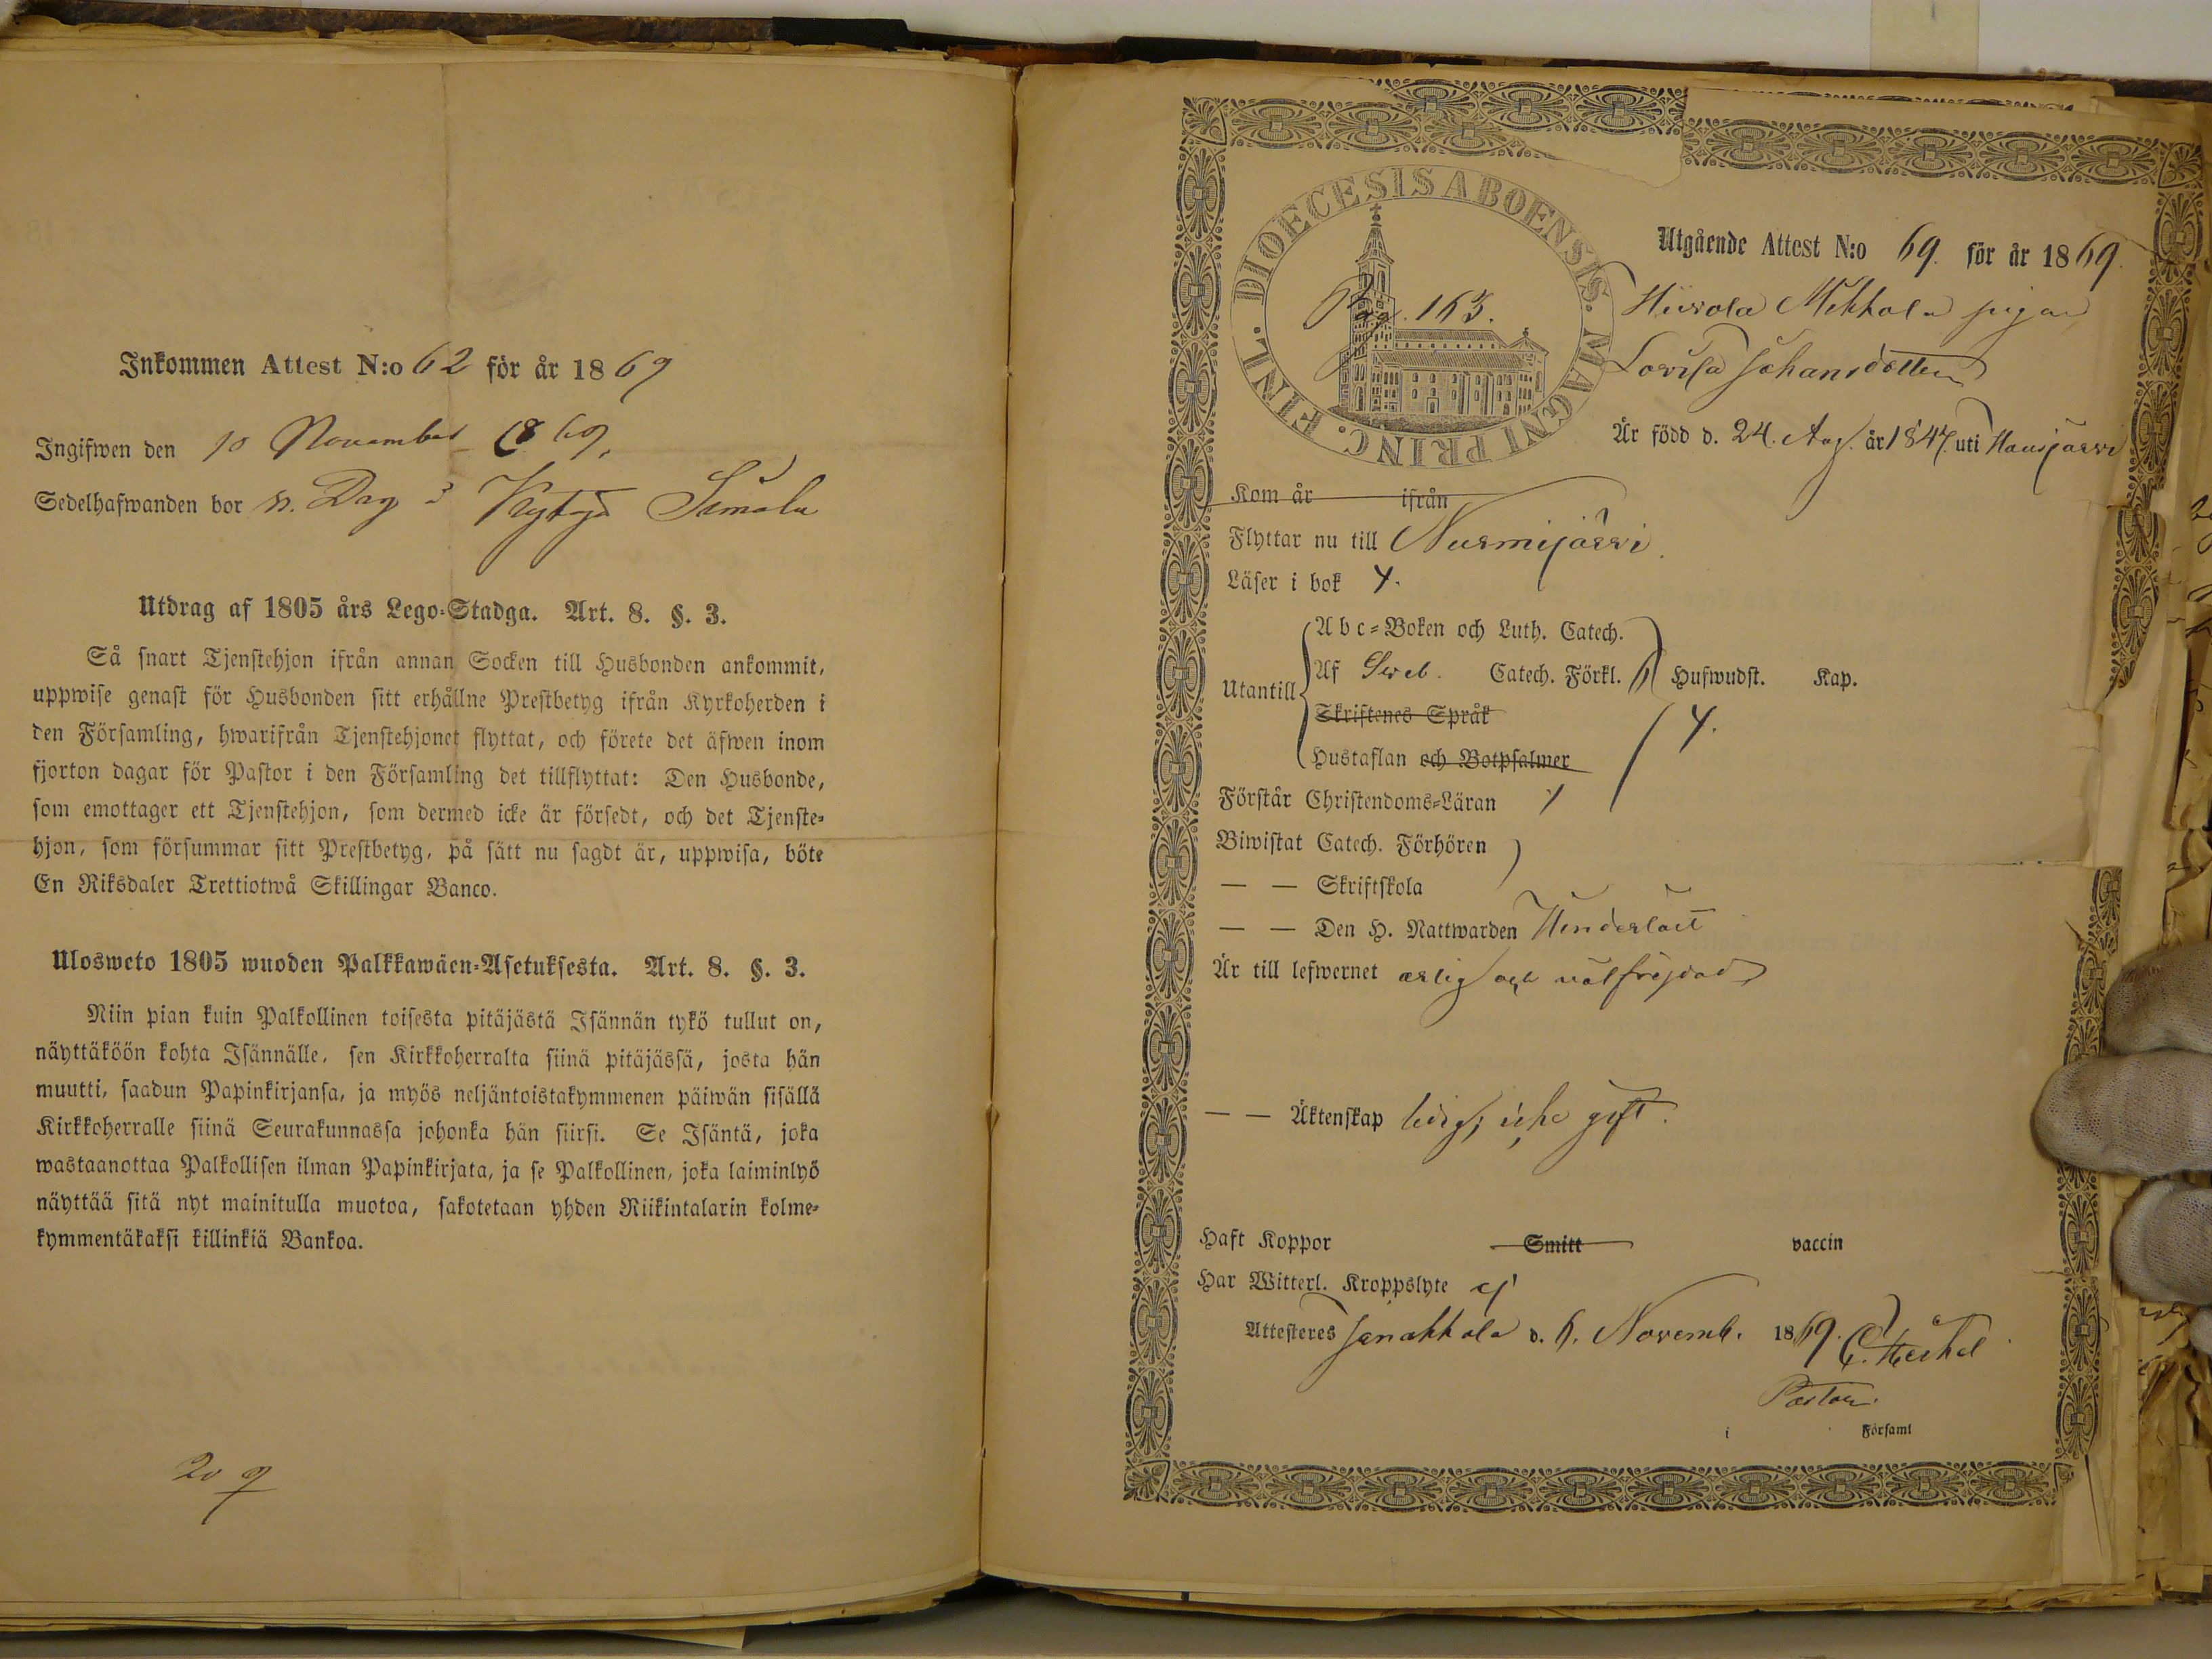 Inkommen Attest N:o 62 för år 1869
Ingifwen den 10 November 1869.
Sedelhafwanden bor n. Dag i Kytäjä Simola
Utdrag af 1805 års Lego-Stadga. Art. 8. §. 3.
Så snart Tjenstehjon ifrån annan Socken till Husbonden ankommit,
uppwise genast för Husbonden sitt erhållne Prestbetyg ifrån Kyrkoherden i
den Församling, hwarifrån Tjenstehjonet flyttat, och förete det äfwen inom
fjorton dagar för Pastor i den Församling det tillflyttat: Den Husbonde,
som emottager ett Tjenstehjon, som dermed icke är försedt, och det Tjenste-
hjon, som försummar sitt Prestbetyg, på sätt nu sagdt är, uppwisa, böte
En Riksdaler Trettiotwå Skillingar Banco.
Ulosweto 1805 wuoden Palkkawäen-Asetuksesta. Art. 8. §. 3.
Niin pian kuin Palkollinen toisesta pitäjästä Isännän tykö tullut on,
näyttäköön kohta Isännälle, sen Kirkkoherralta siinä pitäjässä, josta hän
muutti, saadun Papinkirjansa, ja myös neljäntoistakymmenen päiwän sisällä
Kirkkoherralle siinä Seurakunnassa johonka hän siirsi. Se Isäntä, joka
wastaanottaa Palkollisen ilman Papinkirjata, ja se Palkollinen, joka laiminlyö
näyttää sitä nyt mainitulla muotoa, sakotetaan yhden Riikintalarin kolme-
kymmentäkaksi killinkiä Bankoa.
20 9
DIOECESIS ABOENSIS. MAGNI PRINC. FINL.
Pag. 163.
Utgående Attest N:o 69. för år 1869.
Hiivola Mekkola pigan
Lovisa Johansdotter
Är född d. 24. Aug. år 1847. uti Hausjärvi
Kom år ifrån
Flyttar nu till Nurmijärvi.
Läser i bok Y.
Abc-Boken och Luth. Catech.
Utantill Af Sveb. Catech. Förkl. 6 Hufwudst. Kap.
Skriftenes Språk
Y.
Hustaflan och Botpsalmer
Förstår Christendoms-Läran
Biwistat Catech. Förhören
— — Skriftskola
— — Den H. Nattwarden Hinderlöst
Är till lefwernet ärlig och välfräjdad
— — Äktenskap ledig; icke gift.
Haft Koppor Smitt vaccin
Har Witterl. Kroppslyte ej
Attesteras Janakkala d. 6. Novemb. 1869.
Pastor
i Församl